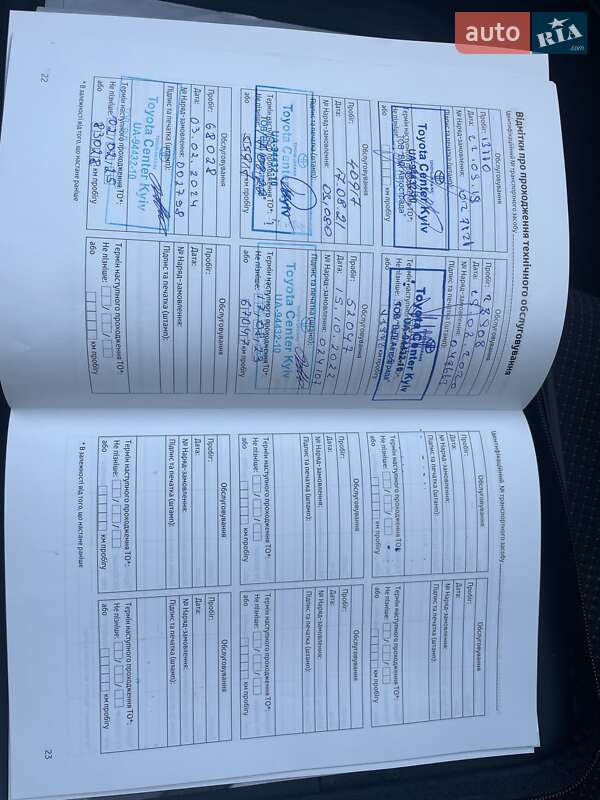 auto RIA.com
Відмітки про проходження технічного обслуговування
Ідентифікаційний № транспортного засобу
Обслуговування
Пробіг: 13170
Дата:
№ Наряд-замовлення:
Підпис та печатка (штамп):
Toyota Center Kyiv
Термін наступного проходження ТО*:
Не пізніше:
або км пробігу
Обслуговування
Пробіг: 28908
Дата: 02.2020
№ Наряд-замовлення:
Підпис та печатка (штамп):
Toyota Center Kyiv
UA-94432-10
або км пробігу
Обслуговування
Пробіг: 40917
Дата: 17.08.21
№ Наряд-замовлення:
Підпис та печатка (штамп):
Toyota Center Kyiv
UA-94432-10
Термін наступного проходження ТО*:
Не пізніше:
або км пробігу
Обслуговування
Пробіг: 52047
Дата: 15.10.2022
№ Наряд-замовлення:
Підпис та печатка (штамп):
Toyota Center Kyiv
UA-94432-10
Термін наступного проходження ТО*:
Не пізніше:
або 67047 км пробігу
Обслуговування
Пробіг: 68028
Дата: 03.02.2024
№ Наряд-замовлення: 002708
Підпис та печатка (штамп):
Toyota Center Kyiv
UA-94432-10
Термін наступного проходження ТО*:
Не пізніше: 02/02/25
або 83028 км пробігу
Обслуговування
Пробіг:
Дата:
№ Наряд-замовлення:
Підпис та печатка (штамп):
Термін наступного проходження ТО*:
Не пізніше: / /
або км пробігу
* В залежності від того, що настане раніше
22
Ідентифікаційний № транспортного засобу
Обслуговування
Пробіг:
Дата:
№ Наряд-замовлення:
Підпис та печатка (штамп):
Термін наступного проходження ТО*:
Не пізніше: / /
або км пробігу
Обслуговування
Пробіг:
Дата:
№ Наряд-замовлення:
Підпис та печатка (штамп):
Термін наступного проходження ТО*:
Не пізніше: / /
або км пробігу
Обслуговування
Пробіг:
Дата:
№ Наряд-замовлення:
Підпис та печатка (штамп):
Термін наступного проходження ТО*:
Не пізніше: / /
або км пробігу
Обслуговування
Пробіг:
Дата:
№ Наряд-замовлення:
Підпис та печатка (штамп):
Термін наступного проходження ТО*:
Не пізніше: / /
або км пробігу
Обслуговування
Пробіг:
Дата:
№ Наряд-замовлення:
Підпис та печатка (штамп):
Термін наступного проходження ТО*:
Не пізніше: / /
або км пробігу
Обслуговування
Пробіг:
Дата:
№ Наряд-замовлення:
Підпис та печатка (штамп):
Термін наступного проходження ТО*:
Не пізніше: / /
або км пробігу
* В залежності від того, що настане раніше
23